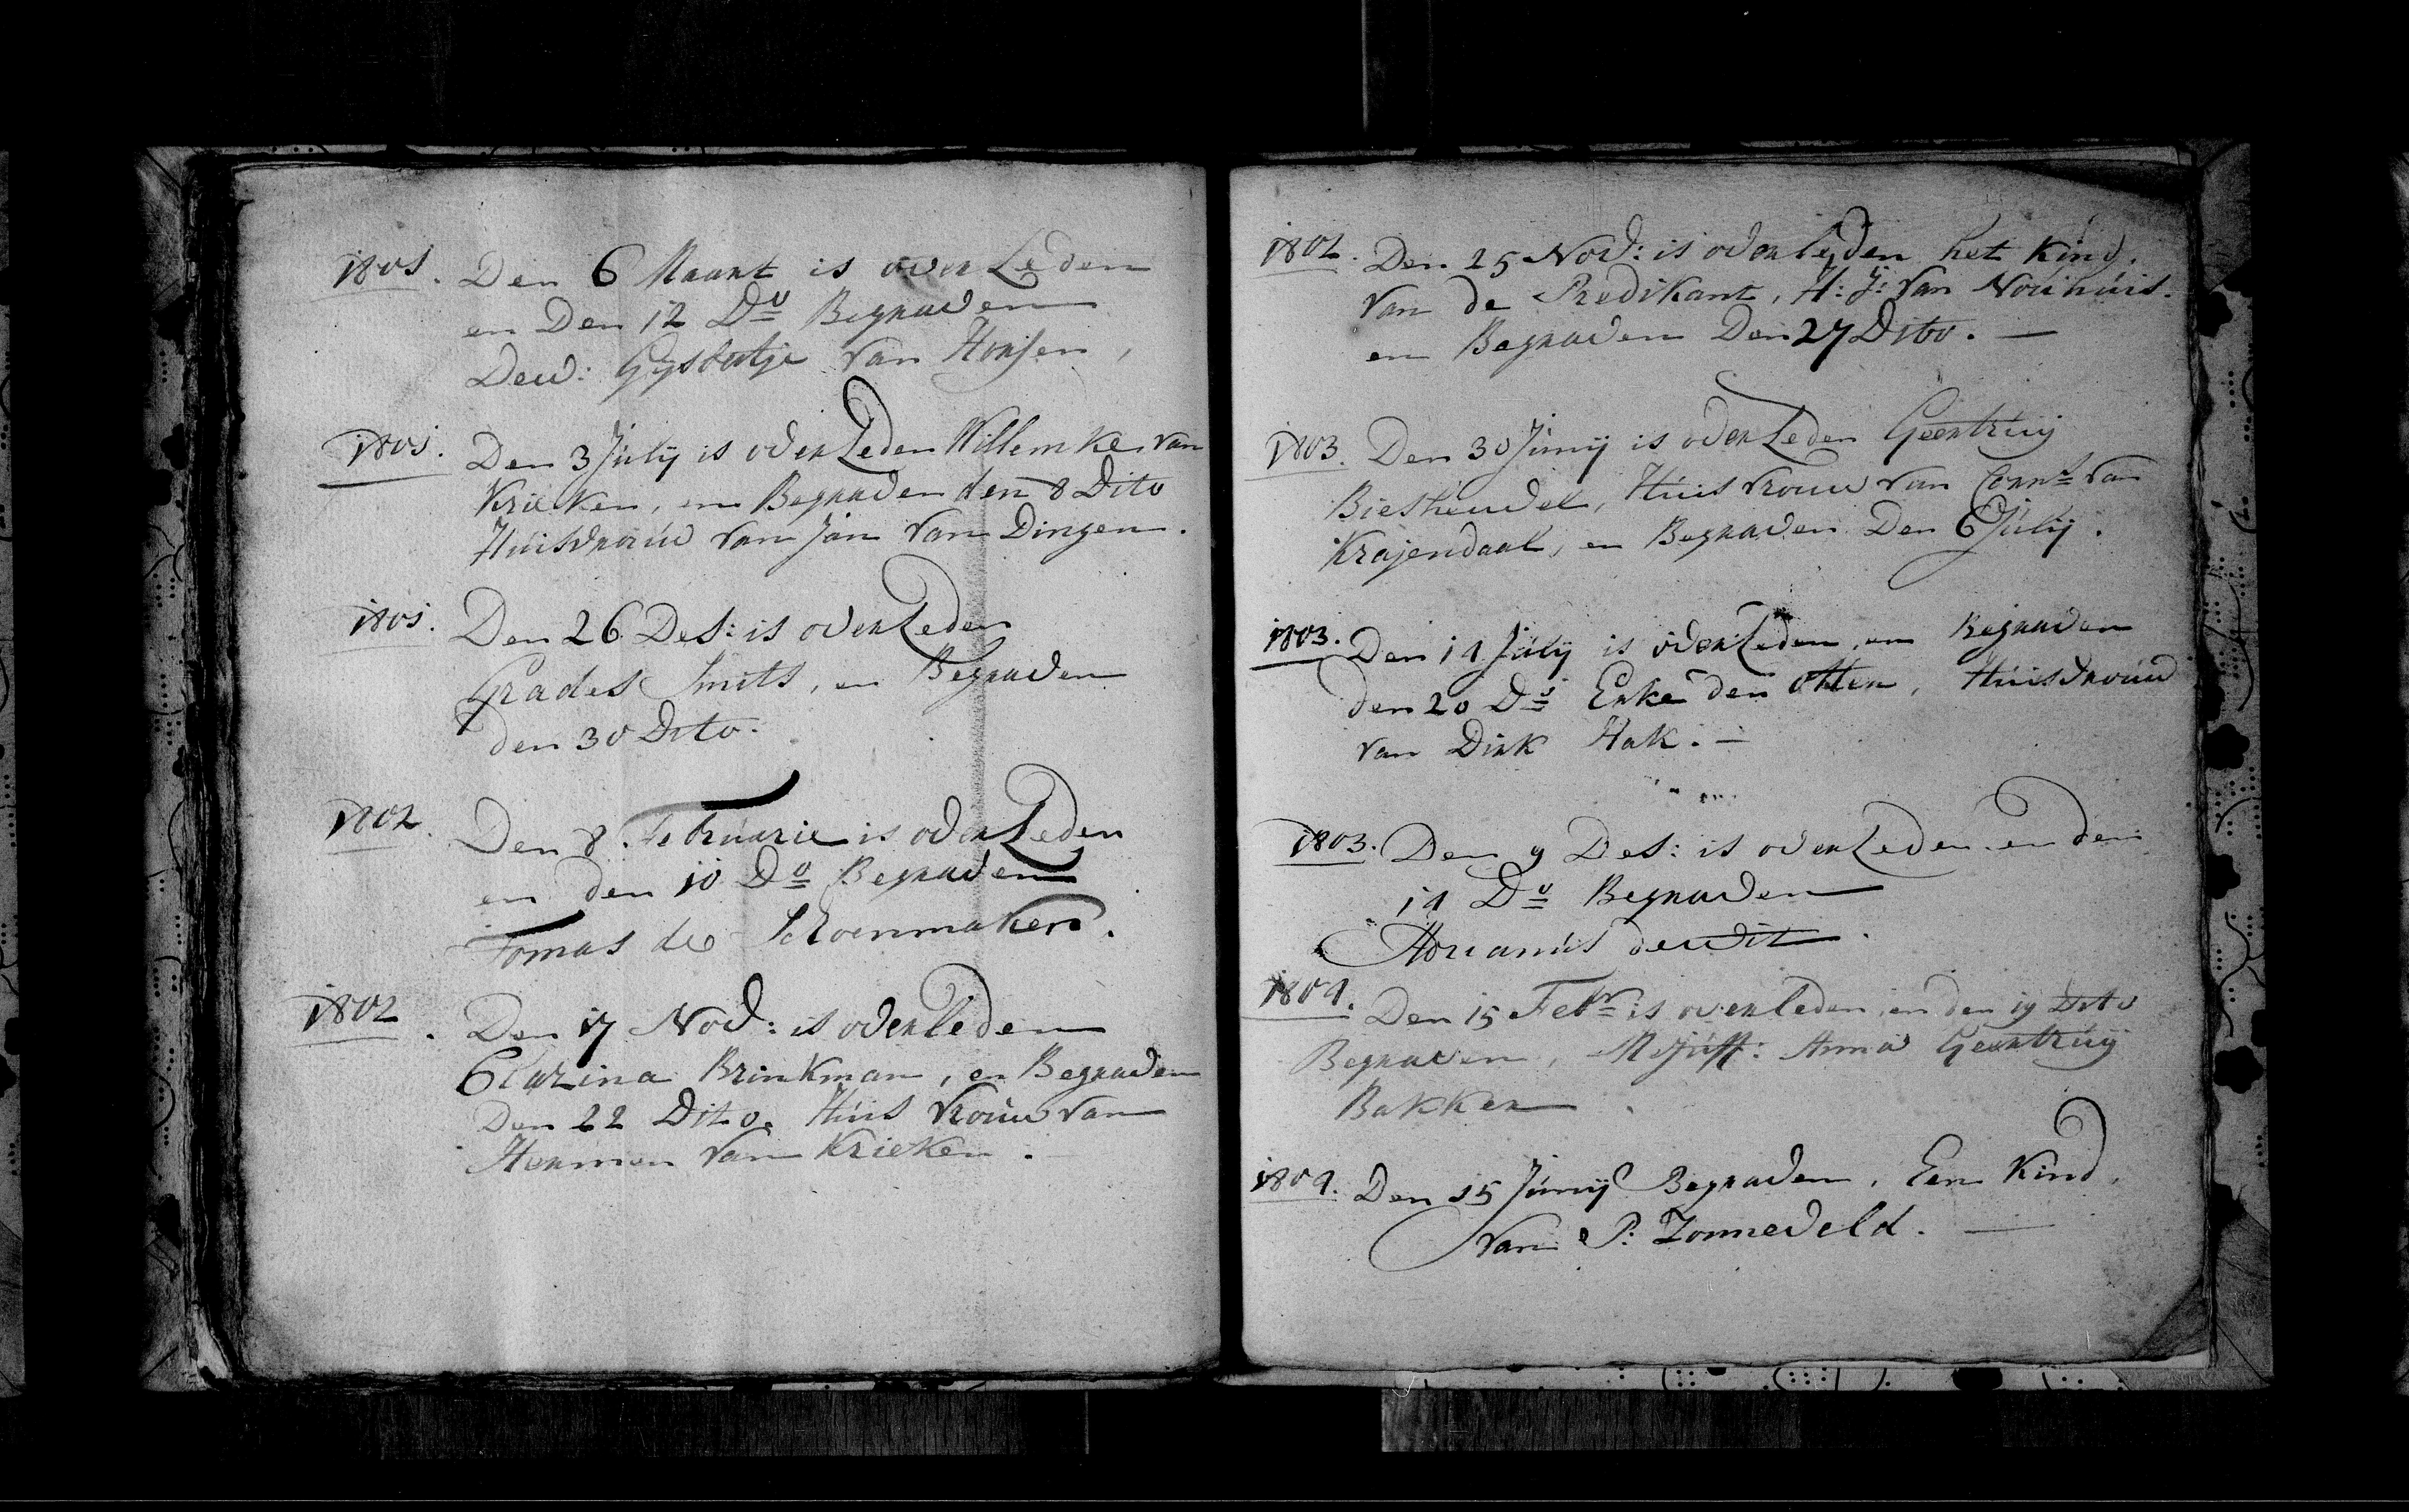 1801. Den 6 Maart is overLeden
en Den 12 Do Begraven
Dew: Gysbertje van Honsen,
1801. Den 3 Julij is overLeden Willemke van
Krieken, en Begraven den 8 Dito
Huisvrouw van Jan van Dingen.
1801. Den 26 Des: is overLeden
Grades Smits, en Begraven
den 30 Dito.
1802. Den 8 Februarie is overLeden
en den 10 Do Begraven
Tomas de Schoenmaker.
1802. Den 17 Nov: is overleden
Clazina Brinkman, en Begraven
Den 22 Dito. Huis vrouw van
Hermen van Krieken.
1802. Den 25 Nov: is overleyden het Kind.
van de Predikant, H: J: van Nouhuis.
en Begraven Den 27 Dito.
1803. Den 30 Junij is overLeden Geertruij
Biesheuvel, Huis vrouw van Corns van
Krajendaal, en Begraven Den 6 Julij.
1803. Den 14 Julij is overLeden, en Begraven
den 20 Do Erke den Otter, Huisvrouw
van Dirk Hak.
1803. Den 9 Des: is overLeden en den
14 Do Begraven
Adrianus dewit.
1804. Den 15 Febr: is overleden, en den 19 Dito
Begraven, Mejuff: Anna Geertruij
Bakker.
1804. Den 15 Junij Begraven, Een Kind,
van P: Zonneveld.